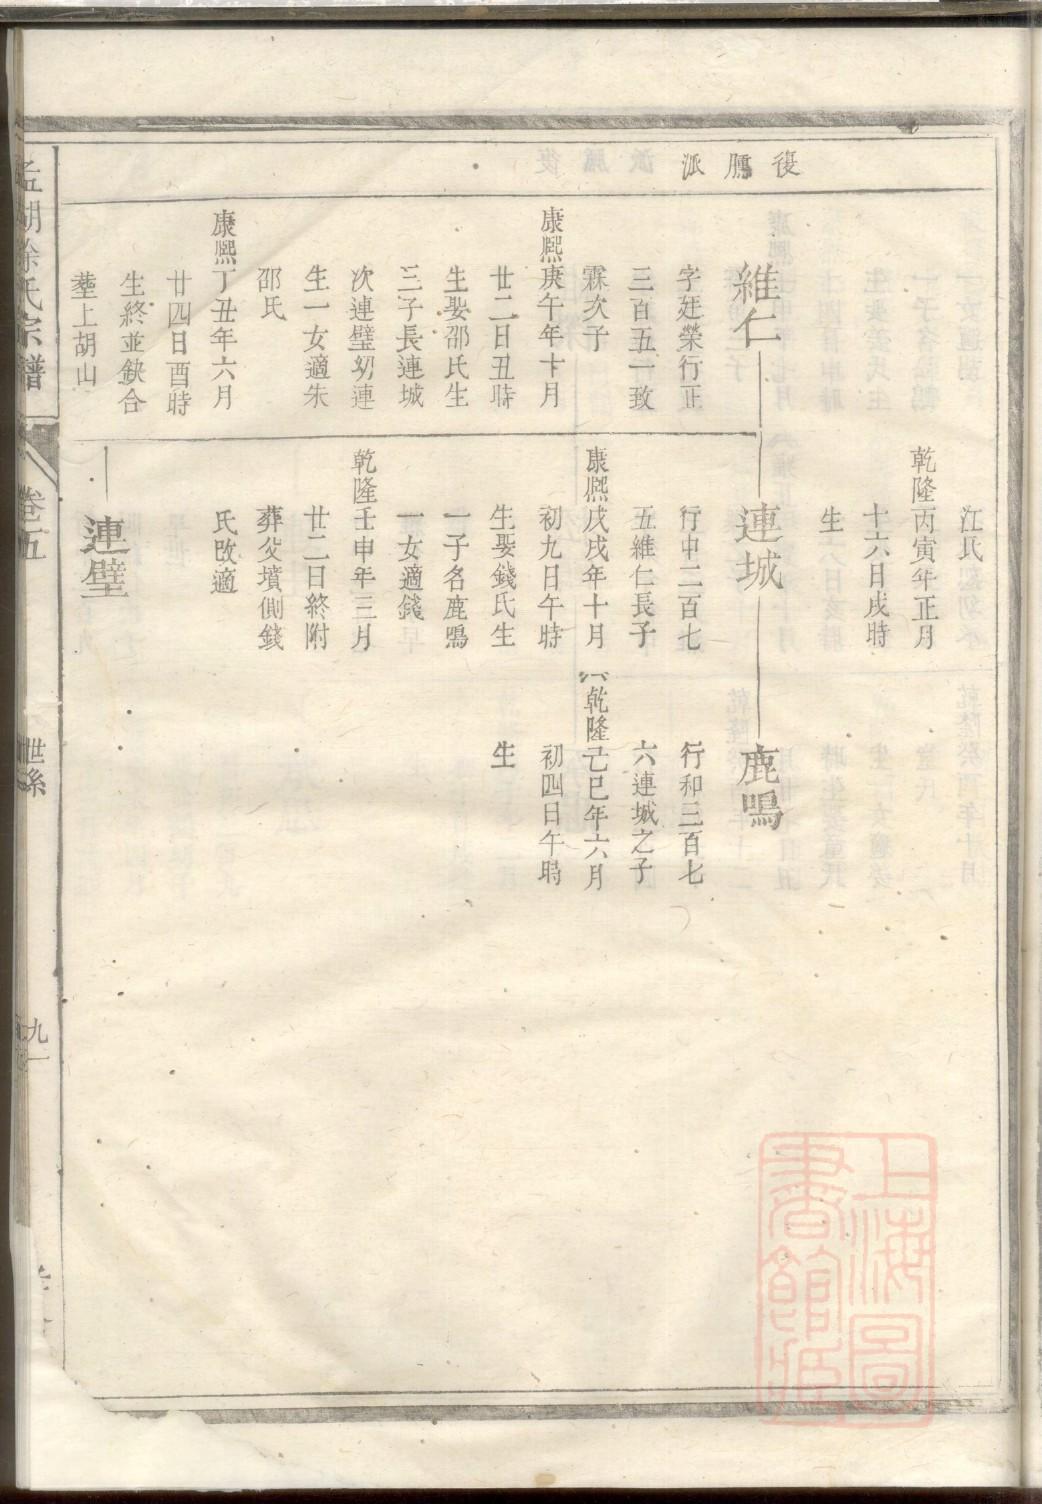 復鵬派
江氏
乾隆丙寅年正月
十六日戌時
生
維仁
字廷榮行正
三百五一致
霖次子
康熙庚午年十月
廿二日丑時
生娶邵氏生
三子長連城
次連璧㓜連
生一女適朱
邵氏
康熙丁丑年六月
廿四日酉時
生終並缺合
塟上胡山
連城
行中二百七
五維仁長子
康熙戊戌年十月
初九日午時
生娶錢氏生
一子名鹿鳴
一女適錢
乾隆壬申年三月
廿二日終附
葬父墳側錢
氏改適
鹿鳴
行和三百七
六連城之子
乾隆己巳年六月
初四日午時
生
連璧
孟湖徐氏宗譜
卷五
世系
九一
上海圖
書館藏